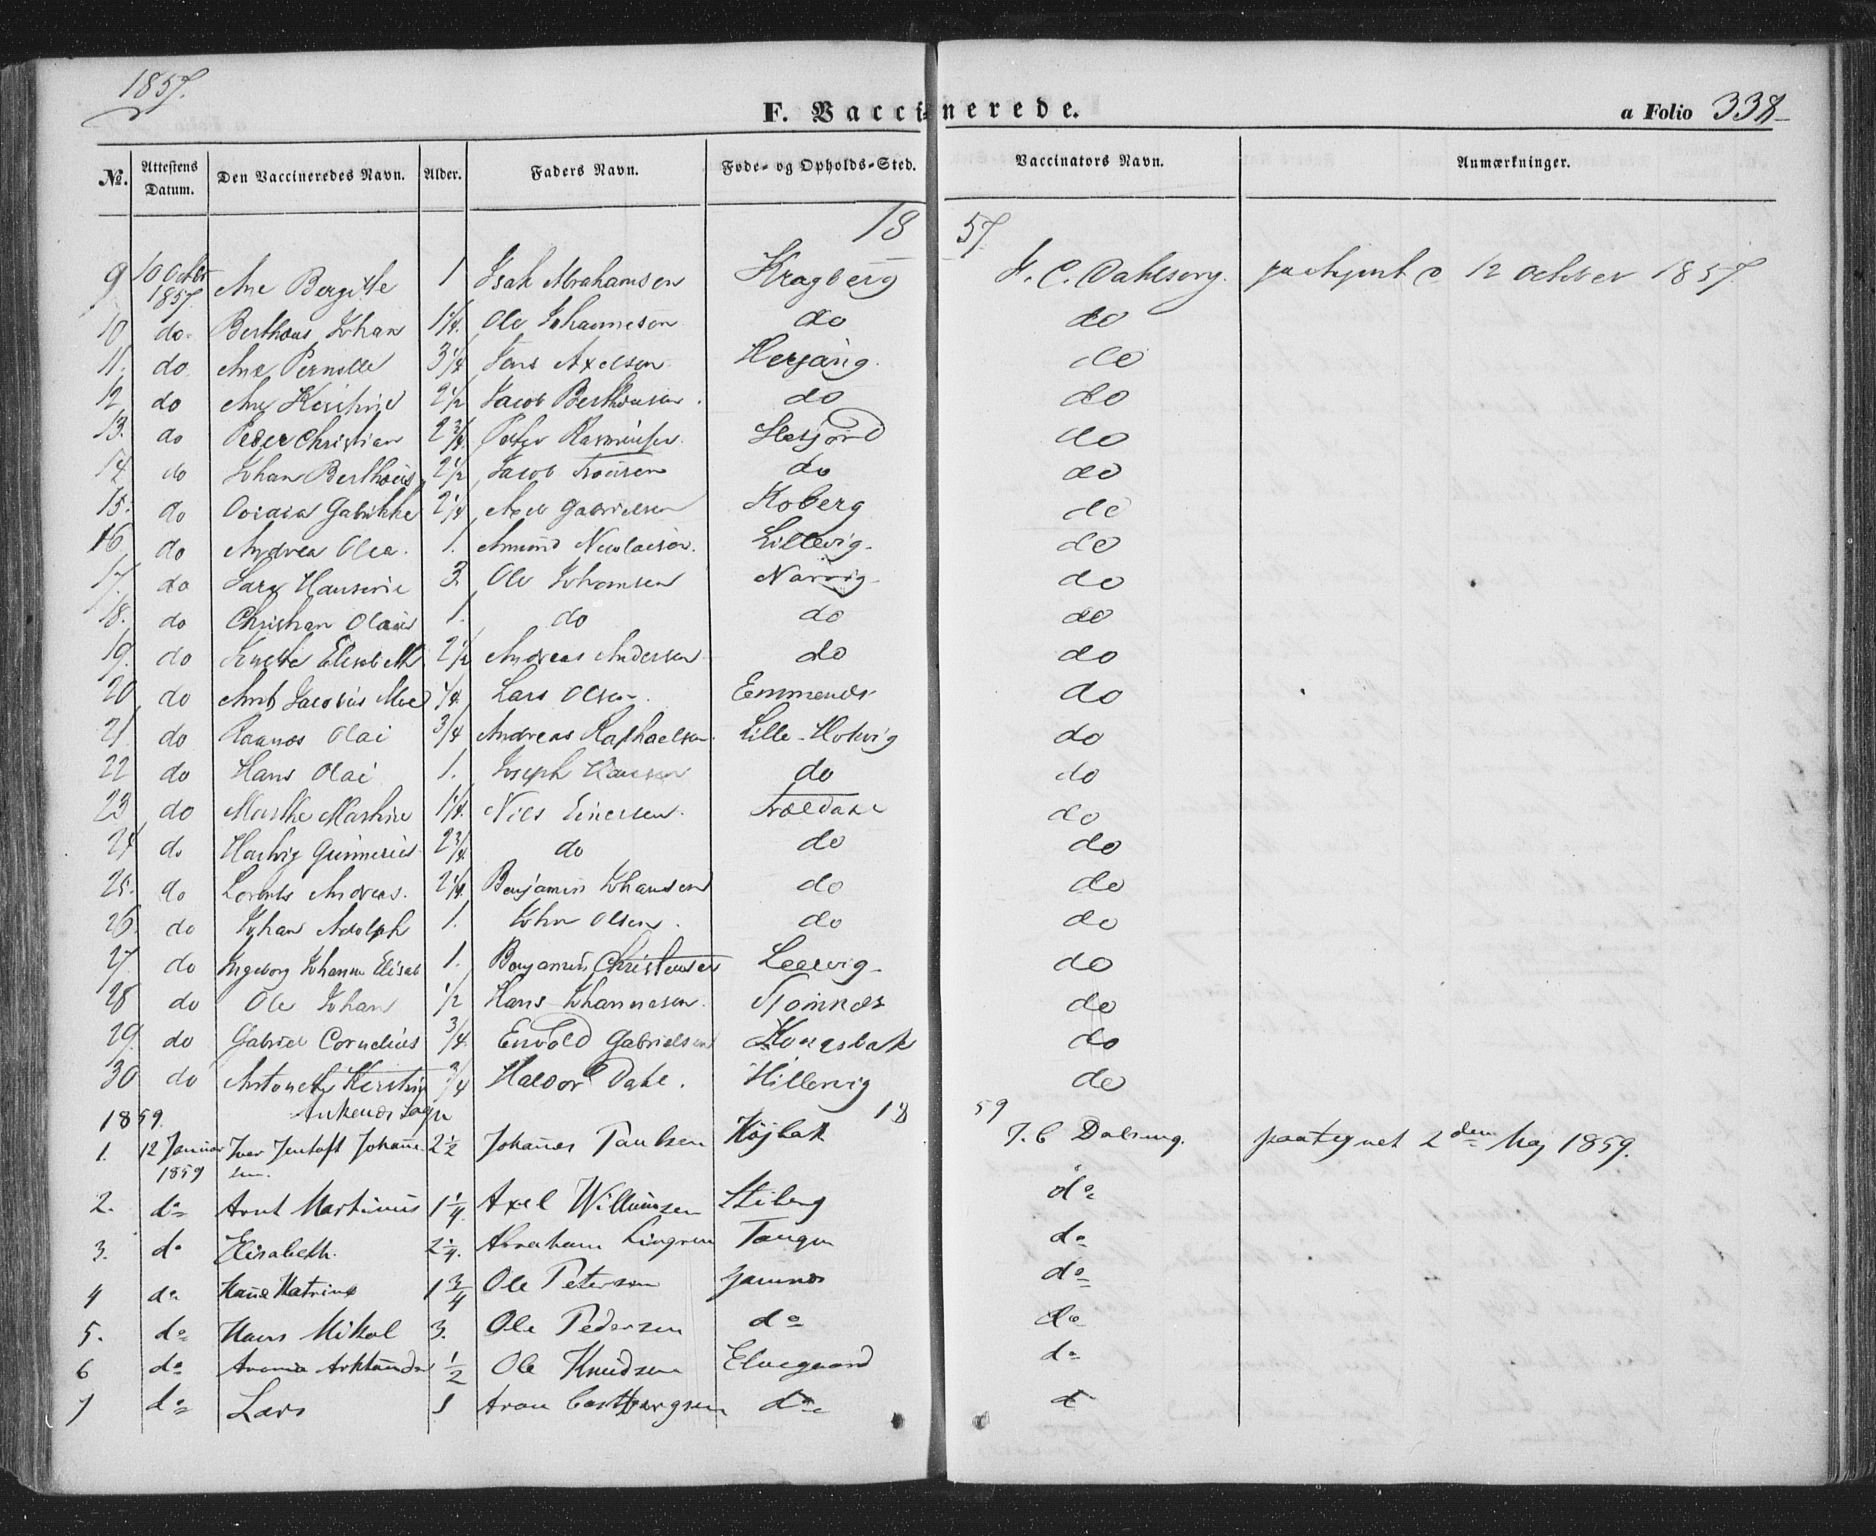 1857.
F. Vaccinerede.
a Folio 338
№. Attestens Datum. Den Vaccineredes Navn. Alder. Faders Navn. Føde- og Opholds-Sted. Vaccinators Navn. Anmærkninger.
1857.
9 10 Octbr 1857. Ane Bergitte 1 Isak Abrahamsen Kragberg J. C. Dahlseng. paategnet 12 October 1857.
10 do Berthæus Johan 1 1/4. Ole Johannesen do do
11. do Ane Pernille 3 1/4 Jens Axelsen Herjang. do
12 do Ane Kirstine 2 1/2 Jacob Berthæusen do do
13. do Peder Christian 2 3/4 Peder Rasmusen do
14 do Johan Berthæus 2 1/2 Jacob do do
15. do Gabrikke 2 1/4 Axel Gabrielsen Koberg do
16 do Andrea Olea. 1. Amund Nicolaisen. Lillevig. do
17. do Hanserie 3. Ole Johansen Narvig do
18. do Christian Olaus 1. do do do
19. do Elisabeth 2 1/2 Andreas Andersen do do
20 do Arnt Jacobus 1/4 Lars Olsen Emmenes do
21 do Olai 3/4 Andreas Raphaelsen. Lille-Hokvig do
22 do Hans Olai 1. Joseph Hansen do do
23 do Marthe Marthine 1 1/4. Nils Einersen. Trældahl do
24 do Hartvig Gunnerius 2 3/4. do do do
25. do Lorents Andreas. 2 1/4. Benjamin Johansen do do
26. do Johan Adolph 1. John Olsen. do do
27. do Ingeborg Johanne Elisab 1. Benjamin Christensen Leervig do
28 do Ole Johan 1/2 Hans Johannesen. do
29. do Gabriel Cornelius 3/4 Envold Gabrielsen Kongsbak do
30 do Antonette Kirstine 3/4 Haldor Dahl. Hillervig do
1859. Ankenes Sogn 1859
1. 12 Januar 1859 Iver Jentoft Johannesen. 2 1/2 Johanes Paulsen Højbak J. C Dalseng. paategnet 2den Maj 1859.
2. do Arnt Martinus 1 1/4 Axel Willumsen Stiberg do
3. do Elisabeth. 2 1/4. Abraham Lingren Tangen do
4 do Hana Katrine 1 3/4 Ole Petersen do
5. do Hans Mikal 3. Ole Pedersen do do
6 do 1/2 Ole Knudsen Elvegaard do
7 do Lars 1 Aron do d